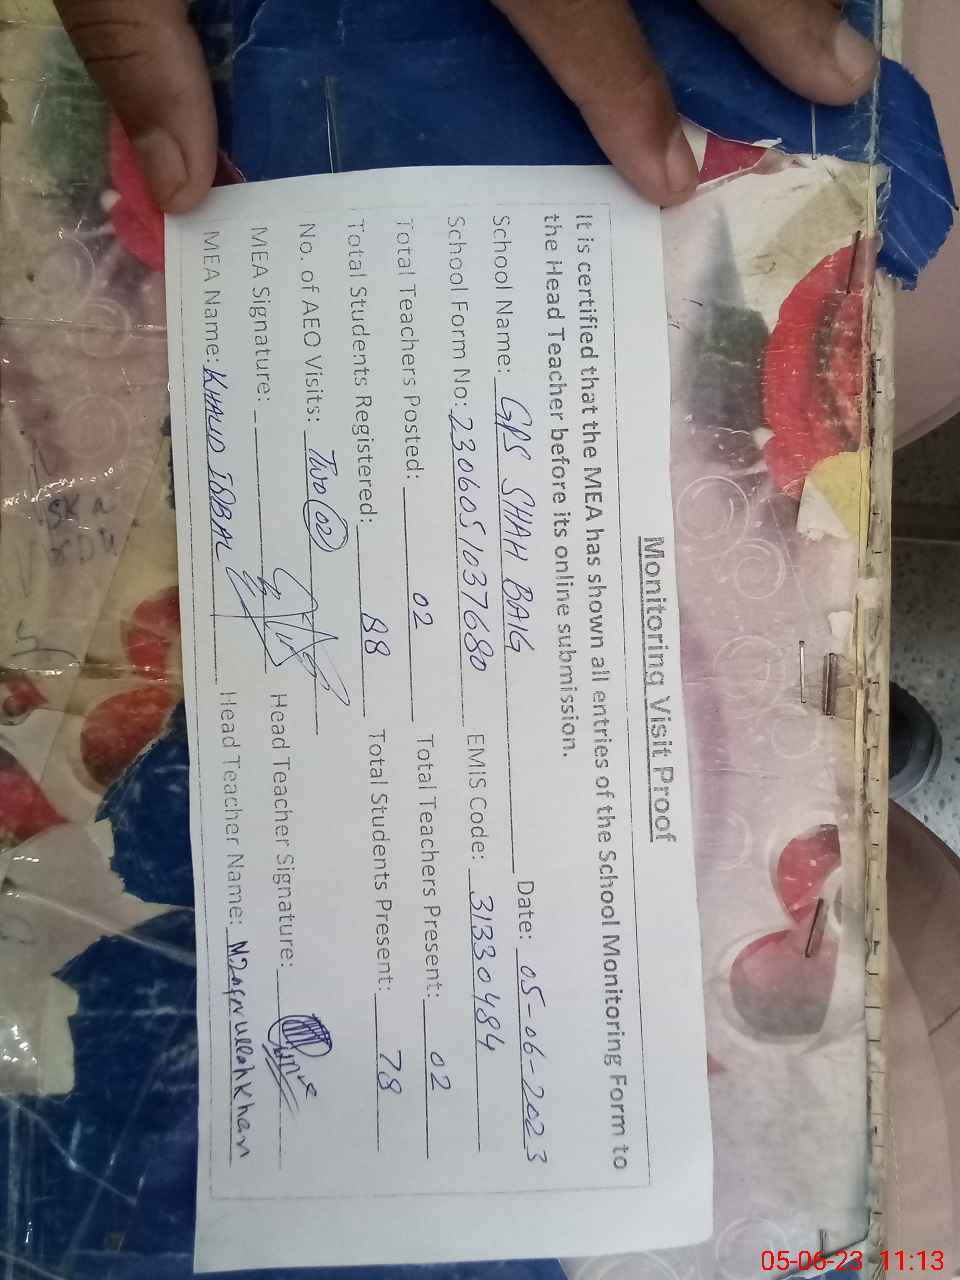 Monitoring Visit Proof
It is certified that the MEA has shown all entries of the School Monitoring Form to
the Head Teacher before its online submission.
School Name: GPS SHAH BAIG Date: 05-06-2023
School Form No: 2306051037680 EMIS Code: 31330484
Total Teachers Posted: 02 Total Teachers Present: 02
Total Students Registered: 88 Total Students Present: 78
No. of AEO Visits: Two (02)
MEA Signature: Head Teacher Signature:
MEA Name: KHALID IQBAL Head Teacher Name: M Zafarullah Khan
05-06-23 11:13